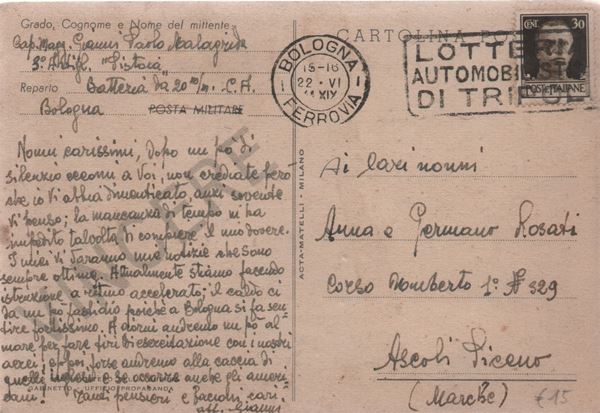 Grado, Cognome e Nome del mittente
Cap. Magg. Gianni Paolo Malagrida
3° Artigl. "Pistoia"
Reparto Batteria da 20 m/m. C.A.
Bologna POSTA MILITARE
VINCERE
Nonni carissimi, dopo un po' di
silenzio eccomi a Voi; non crediate però
che io Vi abbia dimenticato, anzi sovente
Vi penso; la mancanza di tempo mi ha
impedito talvolta di compiere il mio dovere.
I miei Vi daranno mie notizie che sono
sempre ottime. Attualmente stiamo facendo
istruzione a ritmo accelerato; il caldo ci
dà un po' fastidio poiché a Bologna si fa sen-
tire fortissimo. A giorni andremo un po' al
mare per fare tiri di esercitazione con i nostri
aerei; eppoi forse andremo alla caccia di
quelli inglesi e se occorre anche gli ameri-
cani! Tanti pensieri e bacioni cari
aff. Gianni
GABINETTO - UFFICIO PROPAGANDA
ACTA-MATELLI - MILANO
CARTOLINA POSTALE
BOLOGNA
15-16
22 - VI
41 XIX
FERROVIA
LOTTERIA
AUTOMOBILISTICA
DI TRIPOLI
CENT. 30
POSTE ITALIANE
Ai Cari nonni
Anna e Germano Rosati
Corso Umberto 1° N° 329
Ascoli Piceno
(Marche)
€ 15